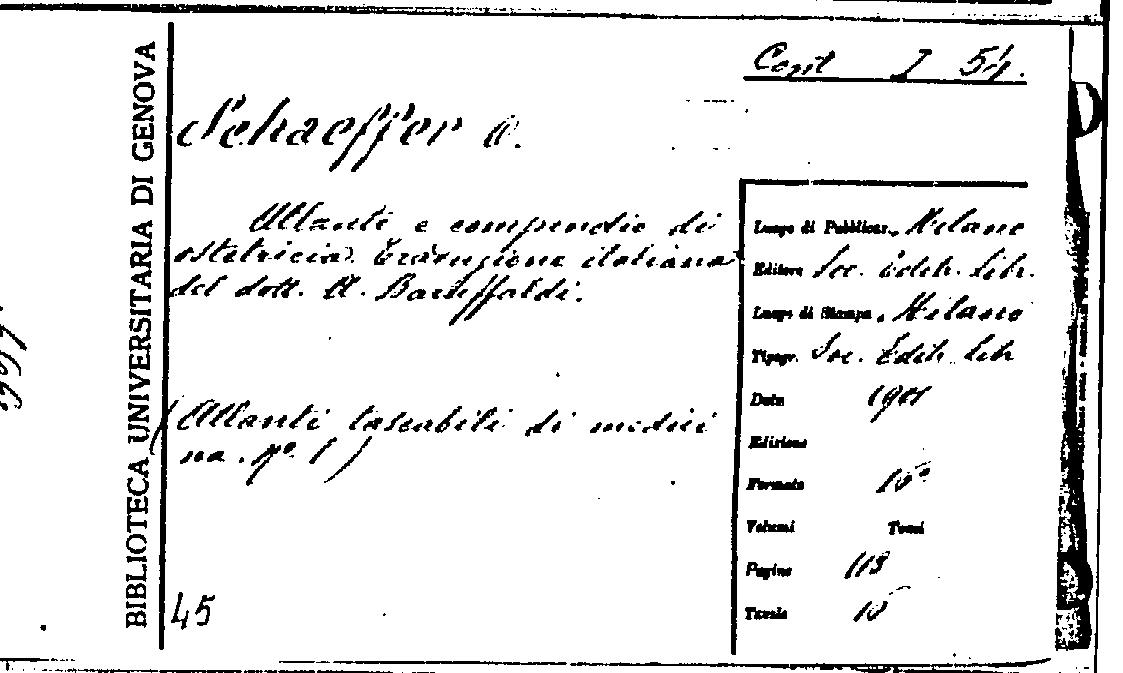 BIBLIOTECA UNIVERSITARIA DI GENOVA
I 54.
Schaeffer O.
Atlanti e compendio di
ostetricia. Traduzione italiana
del dott. A. Baruffaldi.
(Atlanti tascabili di medici
na. nº. 1)
45
Luogo di Pubblicaz. Milano
Editore Soc. Edit. Libr.
Luogo di Stampa Milano
Tipogr. Soc. Edit. Libr
Data 1901
Edizione
Formato 16º
Volumi Tomi
Pagine 118
Tavole